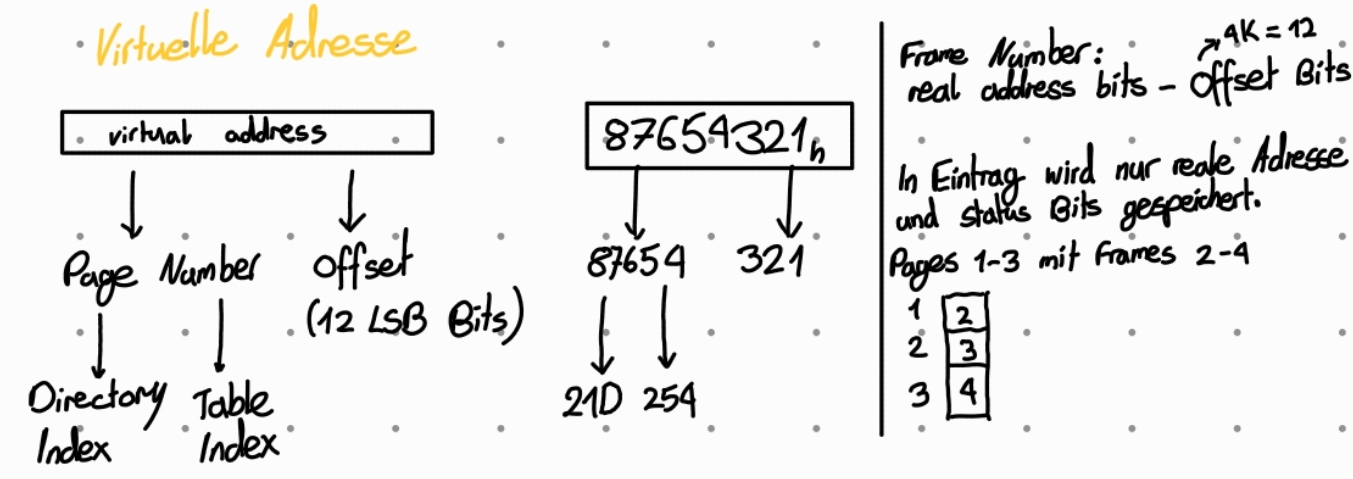 Virtuelle Adresse
virtual address
Page Number Offset
(12 LSB Bits)
Directory Table
Index Index
87654321h
87654 321
21D 254
Frame Number: 4K = 12
real address bits - Offset Bits
In Eintrag wird nur reale Adresse
und status Bits gespeichert.
Pages 1-3 mit Frames 2-4
1 2
2 3
3 4